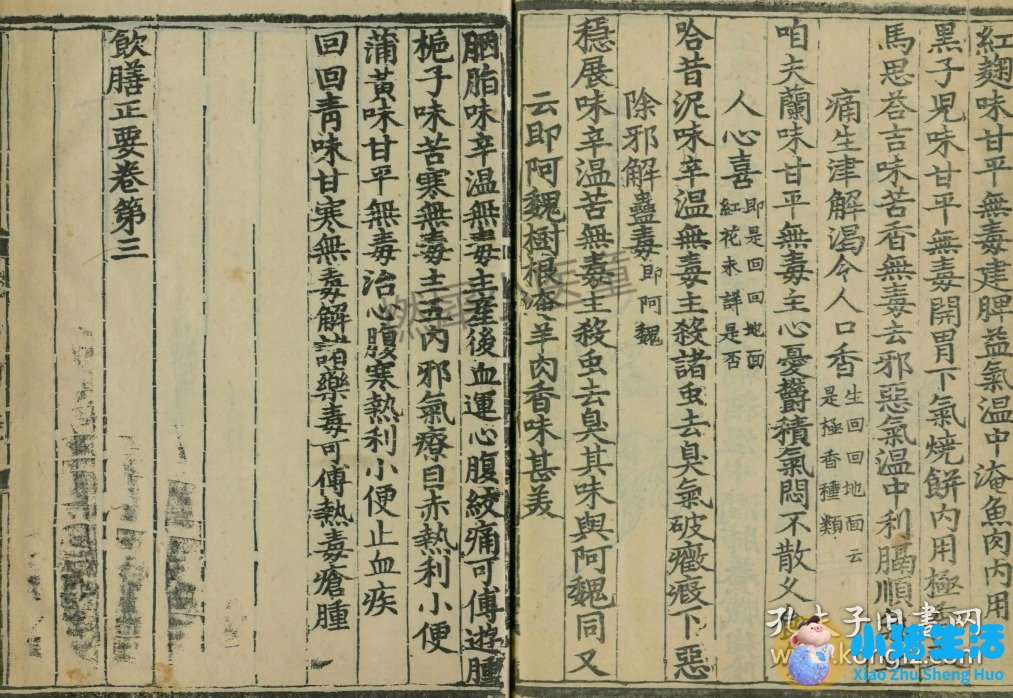 紅麹味甘平無毒建脾益氣温中淹魚肉內用
黑子兒味甘平無毒開胃下氣燒餅內用極
馬思荅吉味苦香無毒去邪惡氣温中利膈順
痛生津解渴令人口香生回回地面云
是極香種類
咱夫蘭味甘平無毒主心憂鬱積氣悶不散乆
人心喜即是回回地面
紅花未詳是否
哈昔泥味辛温無毒主殺諸虫去臭氣破癥瘕下惡
除邪解蠱毒即阿魏
穩展味辛温苦無毒主殺虫去臭其味與阿魏同又
云即阿魏樹根淹羊肉香味甚美
胭脂味辛温無毒主産後血運心腹絞痛可傅遊腫
梔子味苦寒無毒主五內邪氣療目赤熱利小便
蒲黃味甘平無毒治心腹寒熱利小便止血疾
回回青味甘寒無毒解諸藥毒可傅熱毒瘡腫
飲膳正要卷第三
孔夫子旧書网
小猪生活
Xiao Zhu Sheng Huo